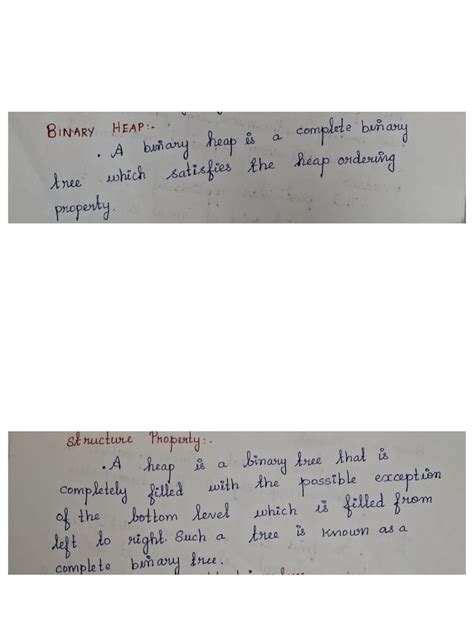 BINARY HEAP:-
. A binary heap is a complete binary
tree which satisfies the heap ordering
property.
structure Property:.
. A heap is a binary tree that is
completely filled with the possible exception
of the bottom level which is filled from
left to right. Such a tree is known as a
complete binary tree.